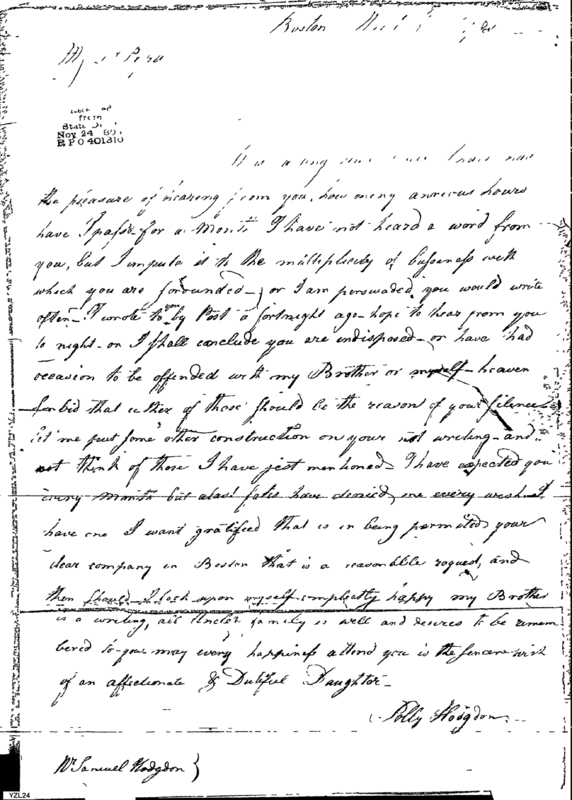 Boston
My
from
State
Nov 24
E P O 401310
It is a long since I have had
the pleasure of hearing from you, how meny anxious hours
have I passd for a Month I have not heard a word from
you, but I impute it to the multiplicity of buseness with
which you are sorounded or I am perswaded you would write
often I wrote to you by Post a fortnight ago hope to hear from you
to night or I shall conclude you are indisposed or have had
occasion to be offended with my Brother or myself heaven
forbid that either of those should be the reason of your silence
let me put some other construction on your not writeing and
not think of those I have just mentioned I have expected you
every month but alas! fates have denied me every wish I
have one I want gratified that is in being permited your
dear company in Boston that is a reasonble request, and
then should I look upon myself compleatly happy my Brother
is a writing, all Uncles family is well and desires to be remem
bered to you may every happiness attend you is the sencere wish
of an affectionate & Dutiful Daughter
Polly Hodgdon
Mr Samuel Hodgdon }
YZL24